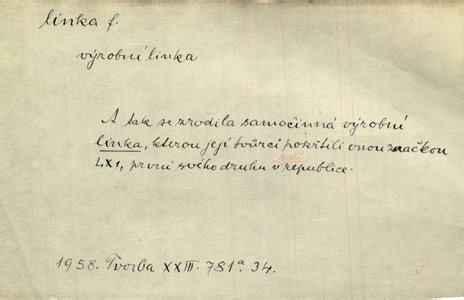 linka f.
výrobní linka
A tak se zrodila samočinná výrobní
linka, kterou její tvůrci pokřtili onou značkou
LX1, první svého druhu v naší republice.
1958. Tvorba XXIII. 781a. 34.